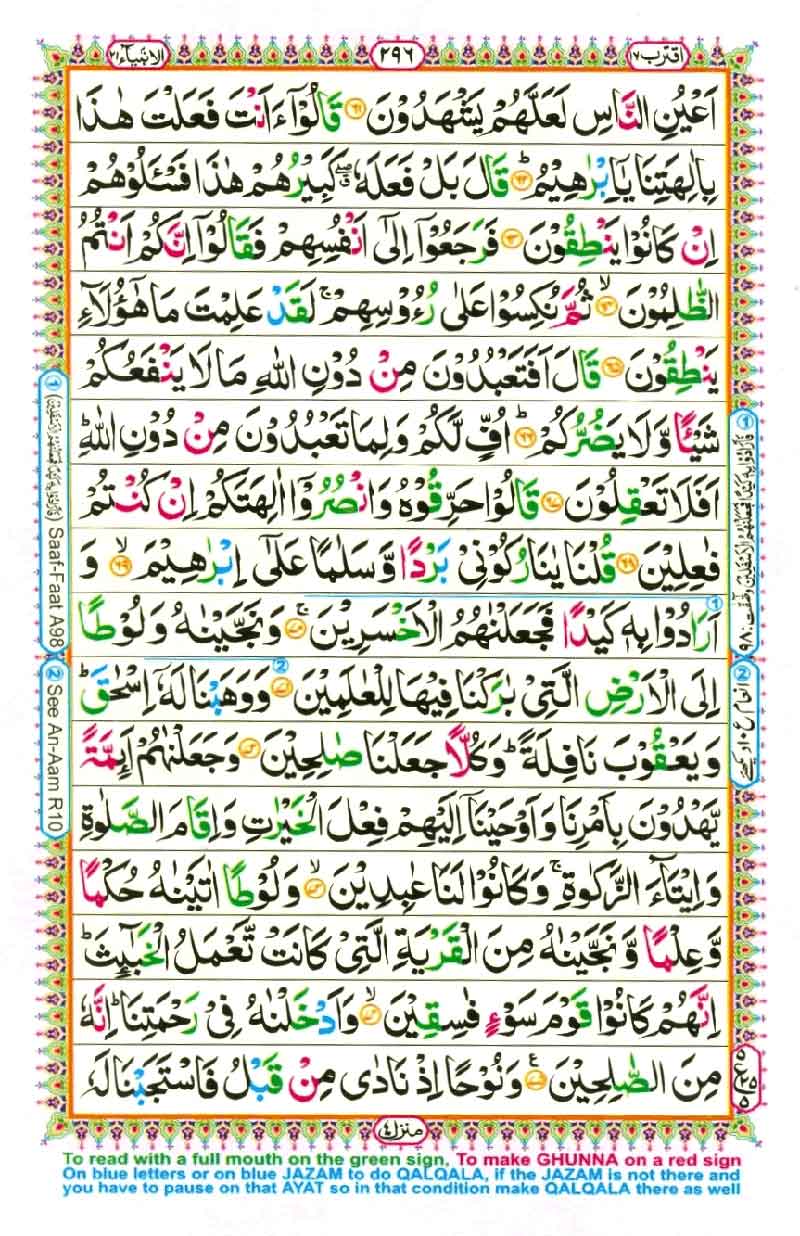 الانبیآء ۲۱
۲۹۶
اقترب ۱۷
اَعْيُنِ النَّاسِ لَعَلَّهُمْ يَشْهَدُوْنَ ۝۶۱ قَالُوْٓا ءَاَنْتَ فَعَلْتَ هٰذَا
بِاٰلِهَتِنَا يٰۤاِبْرٰهِيْمُ ؕ۝۶۲ قَالَ بَلْ فَعَلَهٗ ۖۗ كَبِيْرُهُمْ هٰذَا فَسْـَٔلُوْهُمْ
اِنْ كَانُوْا يَنْطِقُوْنَ ۝۶۳ فَرَجَعُوْٓا اِلٰٓى اَنْفُسِهِمْ فَقَالُوْٓا اِنَّكُمْ اَنْتُمُ
الظّٰلِمُوْنَ ۙ۝۶۴ ثُمَّ نُكِسُوْا عَلٰى رُءُوْسِهِمْ ۚ لَقَدْ عَلِمْتَ مَا هٰٓؤُلَآءِ
يَنْطِقُوْنَ ۝۶۵ قَالَ اَفَتَعْبُدُوْنَ مِنْ دُوْنِ اللّٰهِ مَا لَا يَنْفَعُكُمْ
شَيْـًٔا وَّلَا يَضُرُّكُمْ ؕ۝۶۶ اُفٍّ لَّكُمْ وَلِمَا تَعْبُدُوْنَ مِنْ دُوْنِ اللّٰهِ ؕ
اَفَلَا تَعْقِلُوْنَ ۝۶۷ قَالُوْا حَرِّقُوْهُ وَانْصُرُوْٓا اٰلِهَتَكُمْ اِنْ كُنْتُمْ
فٰعِلِيْنَ ۝۶۸ قُلْنَا يٰنَارُ كُوْنِيْ بَرْدًا وَّسَلٰمًا عَلٰٓى اِبْرٰهِيْمَ ۙ۝۶۹ وَ
اَرَادُوْا بِهٖ كَيْدًا فَجَعَلْنٰهُمُ الْاَخْسَرِيْنَ ۚ۝۷۰ وَنَجَّيْنٰهُ وَلُوْطًا
اِلَى الْاَرْضِ الَّتِيْ بٰرَكْنَا فِيْهَا لِلْعٰلَمِيْنَ ۝۷۱ وَوَهَبْنَا لَهٗٓ اِسْحٰقَ ؕ
وَيَعْقُوْبَ نَافِلَةً ؕ وَكُلًّا جَعَلْنَا صٰلِحِيْنَ ۝۷۲ وَجَعَلْنٰهُمْ اَئِمَّةً
يَّهْدُوْنَ بِاَمْرِنَا وَاَوْحَيْنَآ اِلَيْهِمْ فِعْلَ الْخَيْرٰتِ وَاِقَامَ الصَّلٰوةِ
وَاِيْتَآءَ الزَّكٰوةِ ۚ وَكَانُوْا لَنَا عٰبِدِيْنَ ۙ۝۷۳ وَلُوْطًا اٰتَيْنٰهُ حُكْمًا
وَّعِلْمًا وَّنَجَّيْنٰهُ مِنَ الْقَرْيَةِ الَّتِيْ كَانَتْ تَّعْمَلُ الْخَبٰٓئِثَ ؕ
اِنَّهُمْ كَانُوْا قَوْمَ سَوْءٍ فٰسِقِيْنَ ۙ۝۷۴ وَاَدْخَلْنٰهُ فِيْ رَحْمَتِنَا ؕ اِنَّهٗ
مِنَ الصّٰلِحِيْنَ ۝۷۵ وَنُوْحًا اِذْ نَادٰى مِنْ قَبْلُ فَاسْتَجَبْنَا لَهٗ
منزل ۴
① Saaf-Faat A98
② See An-Aam R10
To read with a full mouth on the green sign, To make GHUNNA on a red sign
On blue letters or on blue JAZAM to do QALQALA, if the JAZAM is not there and
you have to pause on that AYAT so in that condition make QALQALA there as well